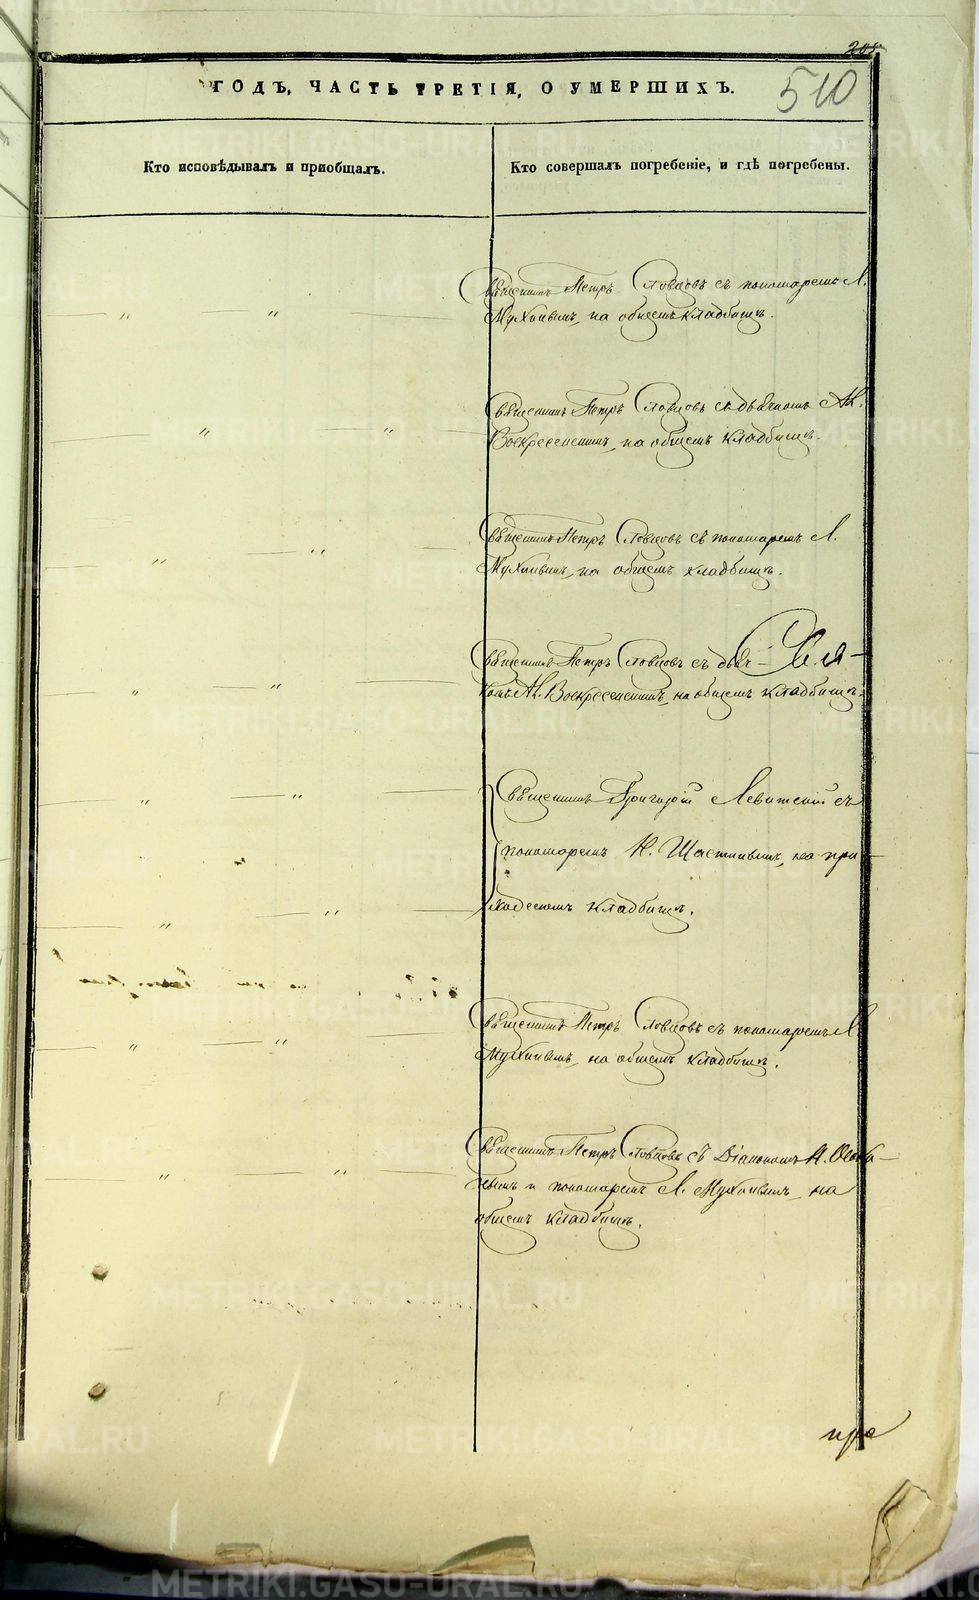 208
510
ГОДЪ, ЧАСТЬ ТРЕТІЯ, О УМЕРШИХЪ.
Кто исповѣдывалъ и приобщалъ.
Кто совершалъ погребеніе, и гдѣ погребены.
Священникъ Петръ Словцовъ съ пономаремъ Л.
Мухинымъ, на общемъ кладбищѣ.
Священникъ Петръ Словцовъ съ дьячкомъ Ал.
Воскресенскимъ, на общемъ кладбищѣ.
Священникъ Петръ Словцовъ съ пономаремъ Л.
Мухинымъ, на общемъ кладбищѣ.
Священникъ Петръ Словцовъ съ дьяч-
комъ Ал. Воскресенскимъ, на общемъ кладбищѣ.
Священникъ Григорій Левитскій съ
пономаремъ Н. Щастневымъ, на при-
ходскомъ кладбищѣ.
Священникъ Петръ Словцовъ съ пономаремъ Л.
Мухинымъ, на общемъ кладбищѣ.
Священникъ Петръ Словцовъ съ Діакономъ Н.
и пономаремъ Л. Мухинымъ, на
общемъ кладбищѣ.
METRIKI.GASO-URAL.RU